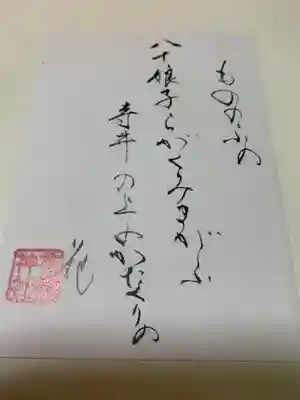 もののふの
八十娘子らがくみまがふ
寺井の上のかたくりの
花